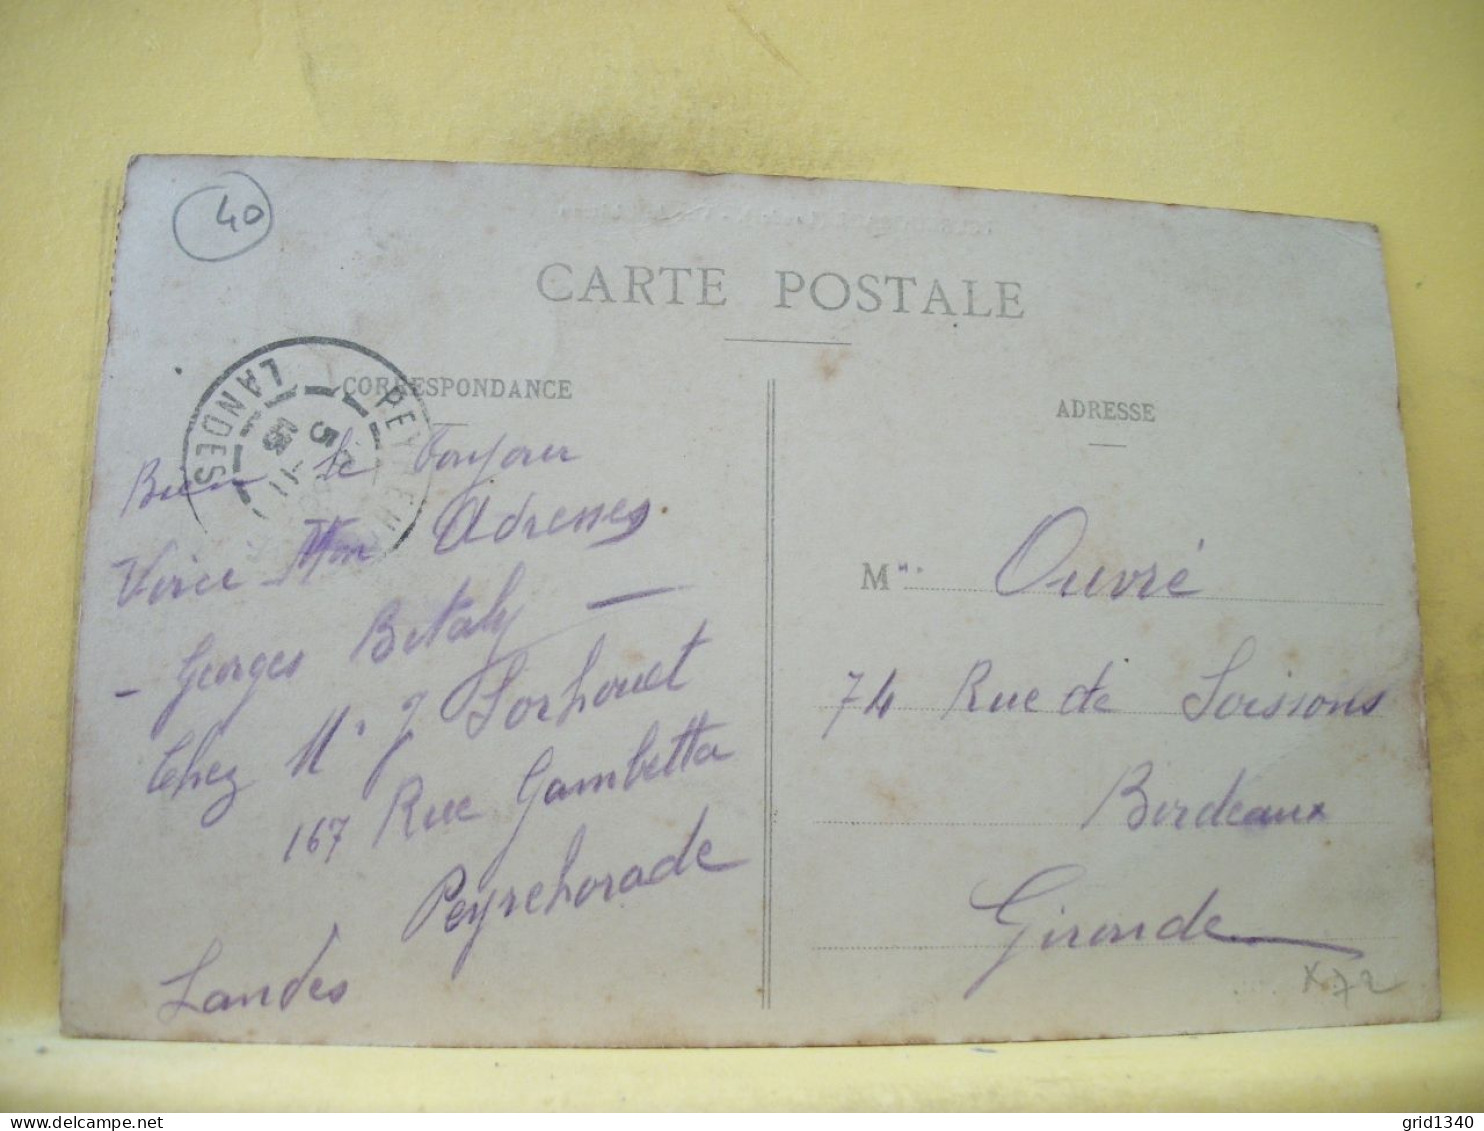 40
CARTE POSTALE
CORRESPONDANCE
LANDES
5
Bien le Bonjour
Voici Mon Adresses
- Georges Bitaly -
Chez M. J Sorhouet
167 Rue Gambetta
Peyrehorade
Landes
ADRESSE
Mme Ouvré
74 Rue de Soissons
Bordeaux
Gironde
X72
delcampe.net
grid1340